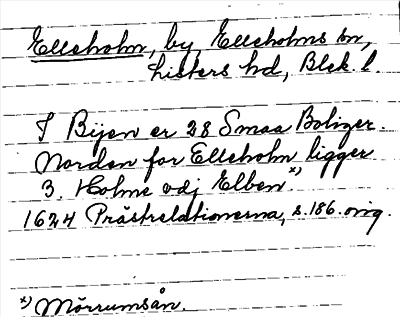 Elleholm, by, Elleholms sn,
Listers hd, Blek. l.
I Bijen er 28 Smaa Boliger.
Norden for Elleholm ligger
3. Holme vdj Elben x)
1624 Prästrelationerna, s. 186. orig.
x) Mörrumsån.